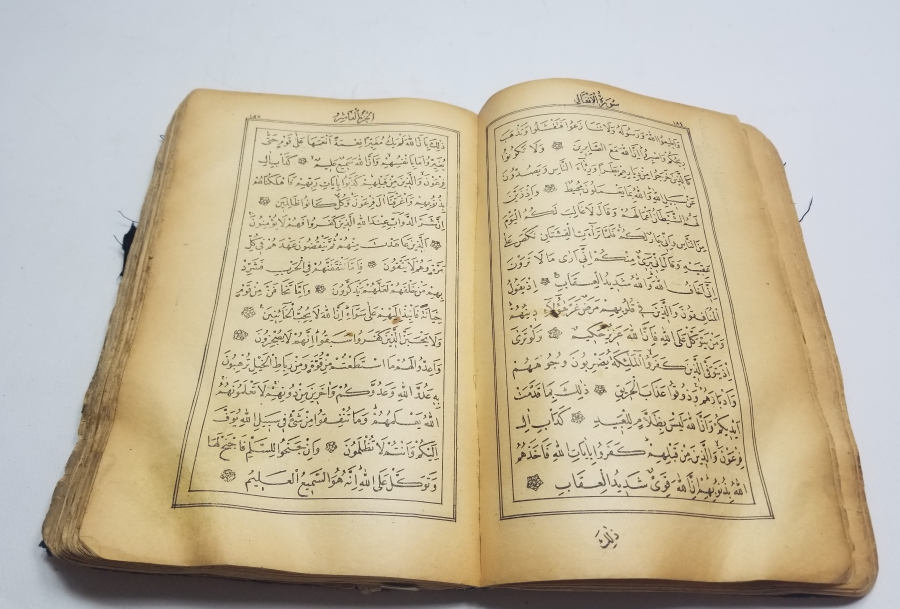 سُورَةُ الْاَنْفَالِ
وَاَطِيعُوا اللّٰهَ وَرَسُولَهُ وَلَا تَنَازَعُوا فَتَفْشَلُوا وَتَذْهَبَ
رِيحُكُمْ وَاصْبِرُوا اِنَّ اللّٰهَ مَعَ الصَّابِرِينَ ۞ وَلَا تَكُونُوا
كَالَّذِينَ خَرَجُوا مِنْ دِيَارِهِمْ بَطَرًا وَرِئَاءَ النَّاسِ وَيَصُدُّونَ
عَنْ سَبِيلِ اللّٰهِ وَاللّٰهُ بِمَا يَعْمَلُونَ مُحِيطٌ ۞ وَاِذْ زَيَّنَ
لَهُمُ الشَّيْطَانُ اَعْمَالَهُمْ وَقَالَ لَا غَالِبَ لَكُمُ الْيَوْمَ
مِنَ النَّاسِ وَاِنِّي جَارٌ لَكُمْ فَلَمَّا تَرَاءَتِ الْفِئَتَانِ نَكَصَ عَلٰى
عَقِبَيْهِ وَقَالَ اِنِّي بَرِيءٌ مِنْكُمْ اِنِّي اَرٰى مَا لَا تَرَوْنَ
اِنِّي اَخَافُ اللّٰهَ وَاللّٰهُ شَدِيدُ الْعِقَابِ ۞ اِذْ يَقُولُ
الْمُنَافِقُونَ وَالَّذِينَ فِي قُلُوبِهِمْ مَرَضٌ غَرَّ هٰؤُلَاءِ دِينُهُمْ
وَمَنْ يَتَوَكَّلْ عَلَى اللّٰهِ فَاِنَّ اللّٰهَ عَزِيزٌ حَكِيمٌ ۞ وَلَوْ تَرٰى
اِذْ يَتَوَفَّى الَّذِينَ كَفَرُوا الْمَلٰئِكَةُ يَضْرِبُونَ وُجُوهَهُمْ
وَاَدْبَارَهُمْ وَذُوقُوا عَذَابَ الْحَرِيقِ ۞ ذٰلِكَ بِمَا قَدَّمَتْ
اَيْدِيكُمْ وَاَنَّ اللّٰهَ لَيْسَ بِظَلَّامٍ لِلْعَبِيدِ ۞ كَدَاْبِ اٰلِ
فِرْعَوْنَ وَالَّذِينَ مِنْ قَبْلِهِمْ كَفَرُوا بِاٰيَاتِ اللّٰهِ فَاَخَذَهُمُ
اللّٰهُ بِذُنُوبِهِمْ اِنَّ اللّٰهَ قَوِيٌّ شَدِيدُ الْعِقَابِ ۞
ذٰلِكَ
اَلْجُزْءُ الْعَاشِرُ
ذٰلِكَ بِاَنَّ اللّٰهَ لَمْ يَكُ مُغَيِّرًا نِعْمَةً اَنْعَمَهَا عَلٰى قَوْمٍ حَتّٰى
يُغَيِّرُوا مَا بِاَنْفُسِهِمْ وَاَنَّ اللّٰهَ سَمِيعٌ عَلِيمٌ ۞ كَدَاْبِ اٰلِ
فِرْعَوْنَ وَالَّذِينَ مِنْ قَبْلِهِمْ كَذَّبُوا بِاٰيَاتِ رَبِّهِمْ فَاَهْلَكْنَاهُمْ
بِذُنُوبِهِمْ وَاَغْرَقْنَا اٰلَ فِرْعَوْنَ وَكُلٌّ كَانُوا ظَالِمِينَ ۞
اِنَّ شَرَّ الدَّوَابِّ عِنْدَ اللّٰهِ الَّذِينَ كَفَرُوا فَهُمْ لَا يُؤْمِنُونَ
۞ اَلَّذِينَ عَاهَدْتَ مِنْهُمْ ثُمَّ يَنْقُضُونَ عَهْدَهُمْ فِي كُلِّ
مَرَّةٍ وَهُمْ لَا يَتَّقُونَ ۞ فَاِمَّا تَثْقَفَنَّهُمْ فِي الْحَرْبِ فَشَرِّدْ
بِهِمْ مَنْ خَلْفَهُمْ لَعَلَّهُمْ يَذَّكَّرُونَ ۞ وَاِمَّا تَخَافَنَّ مِنْ قَوْمٍ
خِيَانَةً فَانْبِذْ اِلَيْهِمْ عَلٰى سَوَاءٍ اِنَّ اللّٰهَ لَا يُحِبُّ الْخَائِنِينَ
۞ وَلَا يَحْسَبَنَّ الَّذِينَ كَفَرُوا سَبَقُوا اِنَّهُمْ لَا يُعْجِزُونَ ۞
وَاَعِدُّوا لَهُمْ مَا اسْتَطَعْتُمْ مِنْ قُوَّةٍ وَمِنْ رِبَاطِ الْخَيْلِ تُرْهِبُونَ
بِهِ عَدُوَّ اللّٰهِ وَعَدُوَّكُمْ وَاٰخَرِينَ مِنْ دُونِهِمْ لَا تَعْلَمُونَهُمْ
اَللّٰهُ يَعْلَمُهُمْ وَمَا تُنْفِقُوا مِنْ شَيْءٍ فِي سَبِيلِ اللّٰهِ يُوَفَّ
اِلَيْكُمْ وَاَنْتُمْ لَا تُظْلَمُونَ ۞ وَاِنْ جَنَحُوا لِلسَّلْمِ فَاجْنَحْ لَهَا
وَتَوَكَّلْ عَلَى اللّٰهِ اِنَّهُ هُوَ السَّمِيعُ الْعَلِيمُ ۞